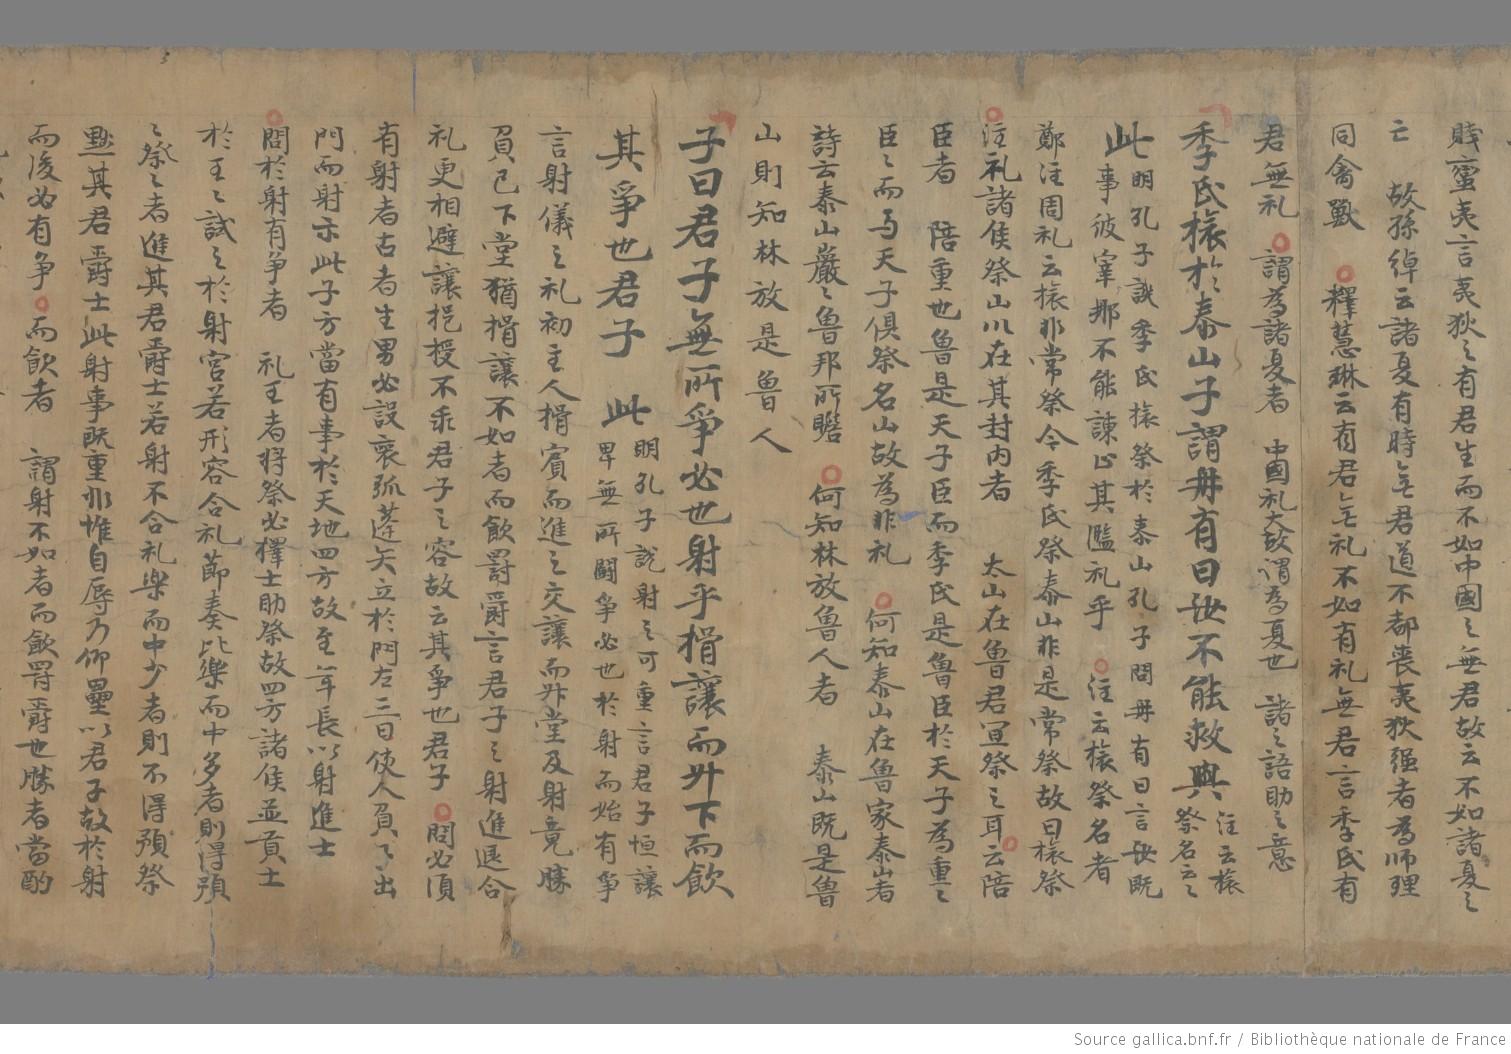 賤蠻夷言夷狄之有君生而不如中國之無君故云不如諸夏之
亡 故孫綽云諸夏有時無君道不都喪夷狄强者為師理
同禽獸 釋慧琳云有君無礼不如有礼無君言季氏有
君無礼 謂為諸夏者 中國礼大故謂為夏也 諸之語助之意
季氏旅於泰山子謂冉有曰汝不能救與注云旅
祭名云々
此明孔子譏季氏旅祭於泰山孔子問冉有曰言汝既
事彼宰那不能諫止其濫礼乎 注云旅祭名者
鄭注周礼云旅非常祭今季氏祭泰山非是常祭故曰旅祭
注礼諸侯祭山川在其封内者 太山在魯君宜祭之耳云陪
臣者 陪重也魯是天子臣而季氏是魯臣於天子為重々
臣々而与天子俱祭名山故為非礼 何知泰山在魯家泰山者
詩云泰山巖々魯邦所瞻 何知林放魯人者 泰山既是魯
山則知林放是魯人
子曰君子無所爭必也射乎揖讓而升下而飲
其爭也君子 此明孔子說射之可重言君子恒讓
卑無所鬪爭必也於射而始有爭
言射儀之礼初主人揖賓而進之交讓而升堂及射竟勝
負已下堂猶揖讓不如者而飲罸爵言君子之射進退合
礼更相避讓挹授不乖君子之容故云其爭也君子 問必須
有射者古者生男必設桑弧蓬矢立於門左三日使人負了出
門而射示此子方當有事於天地四方故至年長以射進士
問於射有争者 礼王者将祭必擇士助祭故四方諸侯並貢士
於王々試之於射宮若形容合礼節奏比樂而中多者則得預
々祭々者進其君爵士若射不合礼樂而中少者則不得預祭
黜其君爵士此射事既重非惟自辱乃仰累以君子故於射
而後必有争 而飲者 謂射不如者而飲罸爵也勝者當酌